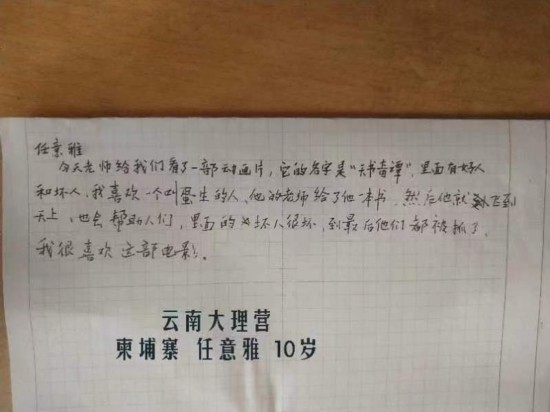 任意雅
今天老师给我们看了一部动画片,它的名字是“天书奇谭”,里面有好人
和坏人,我喜欢一个叫蛋生的人,他的老师给了他一本书,然后他就飞到
天上,也去帮助人们,里面的坏人很坏,到最后他们都被抓了,
我很喜欢这部电影。
云南大理营
柬埔寨 任意雅 10岁